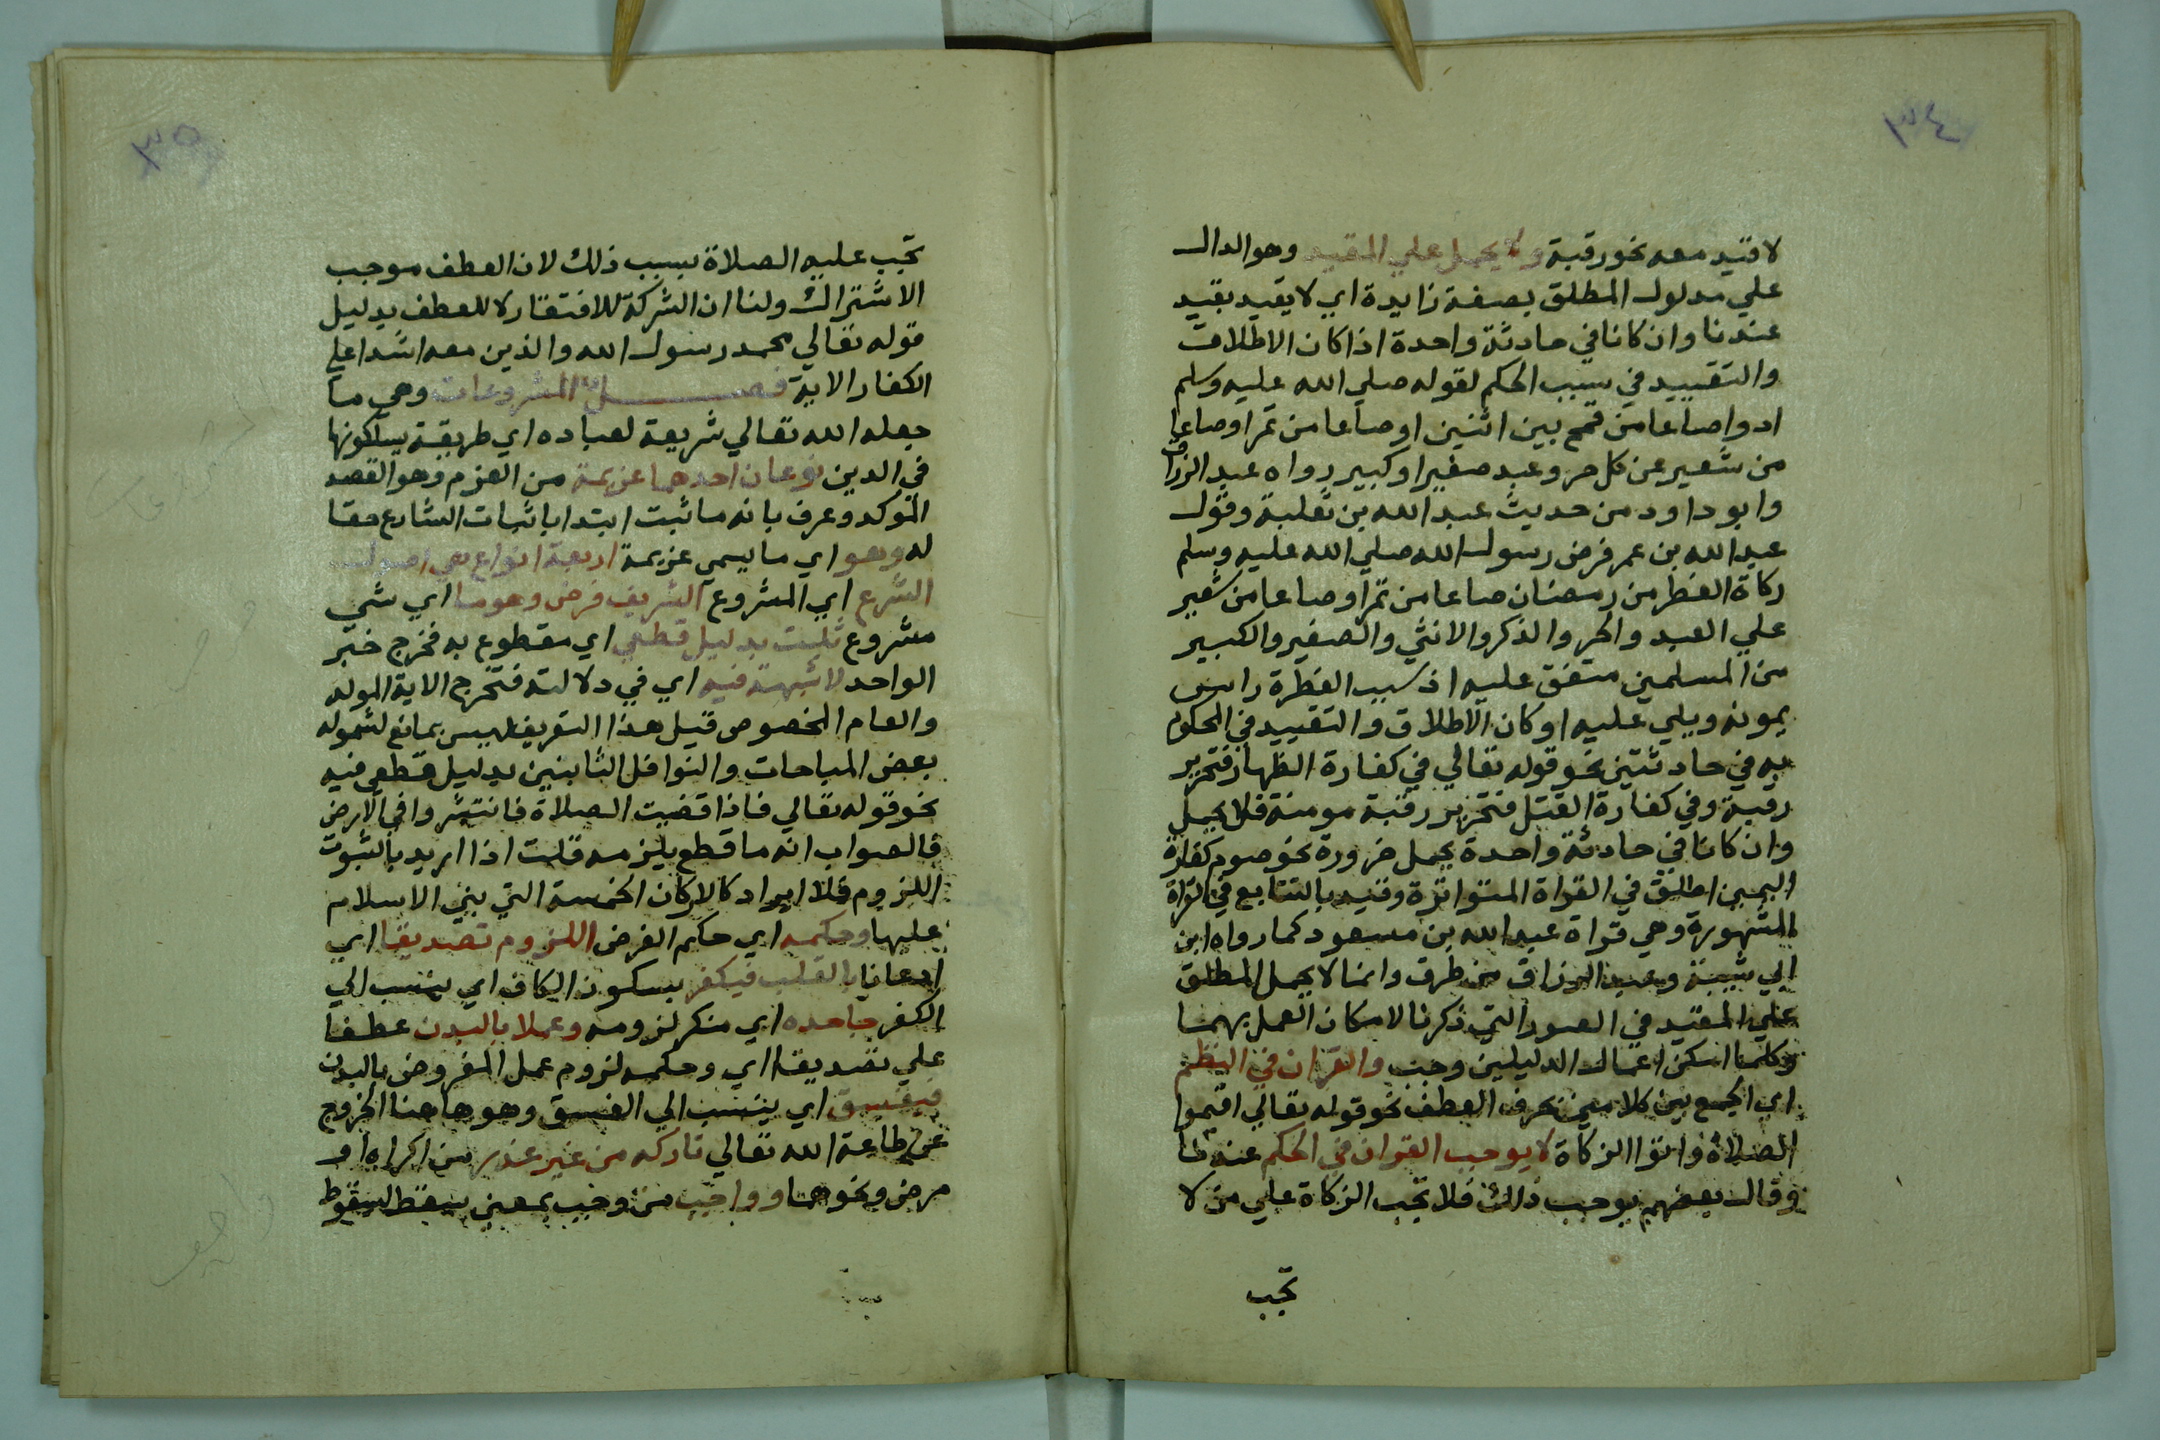 ٣٤
لا قيد معه نحو رقبة ولا يحمل علي المقيد وهو الدال
علي مدلول المطلق بصفة زايدة اي لا يقيد بقيد
عندنا وان كانا في حادثة واحدة اذا كان الاطلاق
والتقييد في سبب الحكم لقوله صلي الله عليه وسلم
ادوا صاعا من قمح بين اثنين او صاعا من تمر او صاعا
من شعير عن كل حر وعبد صغير او كبير رواه عبد الرزاق
وابو داود من حديث عبد الله بن ثعلبة وقول
عبد الله بن عمر فرض رسول الله صلي الله عليه وسلم
زكاة الفطر من رمضان صاعا من تمر او صاعا من شعير
علي العبد والحر والذكر والانثي والصغير والكبير
من المسلمين متفق عليه اذ سبب الفطرة راس
يمونه ويلي عليه او كان الاطلاق والتقييد في المحكوم
به في حادثتين نحو قوله تعالي في كفارة الظهار فتحرير
رقبة وفي كفارة القتل فتحرير رقبة مومنة فلا يحمل
وان كانا في حادثة واحدة يحمل ضرورة نحو صوم كفارة
اليمين اطلق في القراة المتواترة وقيد بالتتابع في القراة
المشهورة وهي قراة عبد الله بن مسعود كما رواه ابن
ابي شيبة وعبد الرزاق من طرق وانما لا يحمل المطلق
علي المقيد في الصور التي ذكرنا لامكان العمل بهما
وكلما امكن اعمال الدليلين وجب والقران في النظم
اي الجمع بين كلامين بحرف العطف نحو قوله تعالي اقيموا
الصلاة واتوا الزكاة لا يوجب القران في الحكم عندنا
وقال بعضهم يوجب ذلك فلا تجب الزكاة علي من لا
تجب
٣٥
تجب عليه الصلاة بسبب ذلك لان العطف موجب
الاشتراك ولنا ان الشركة للافتقار لا للعطف بدليل
قوله تعالي محمد رسول الله والذين معه اشدا علي
الكفار الاية فصل المشروعات وهي ما
جعله الله تعالي شريعة لعباده اي طريقة يسلكونها
في الدين نوعان احدهما عزيمة من العزم وهو القصد
الموكد وعرف بانه ما ثبت ابتدا باثبات الشارع حقا
له وهو اي ما يسمي عزيمة اربعة انواع هي اصول
الشرع اي المشروع الشريف فرض وهو ما اي شي
مشروع ثبت بدليل قطعي اي مقطوع به فخرج خبر
الواحد لا شبهة فيه اي في دلالته فتخرج الاية الموله
والعام المخصوص قيل هذا التعريف ليس بمانع لشموله
بعض المباحات والنوافل الثابتين بدليل قطعي فيه
نحو قوله تعالي فاذا قضيت الصلاة فانتشروا في الارض
فالصواب انه ما قطع بلزمه قلت اذا اريد بالثبوت
اللزوم فلا ايراد كالاركان الخمسة التي بني الاسلام
عليها وحكمه اي حكم الفرض اللزوم تصديقا اي
اذعانا بالقلب فيكفر بسكون الكاف اي ينسب الي
الكفر جاحده اي منكر لزومه وعملا بالبدن عطفا
علي تصديقا اي وحكمه لزوم عمل المفروض بالبدن
فيفسق اي ينسب الي الفسق وهو هاهنا الخروج
عن طاعة الله تعالي تاركه من غير عذر من اكراه او
مرض ونحوهما وواجب من وجب بمعني سقط لسقوط